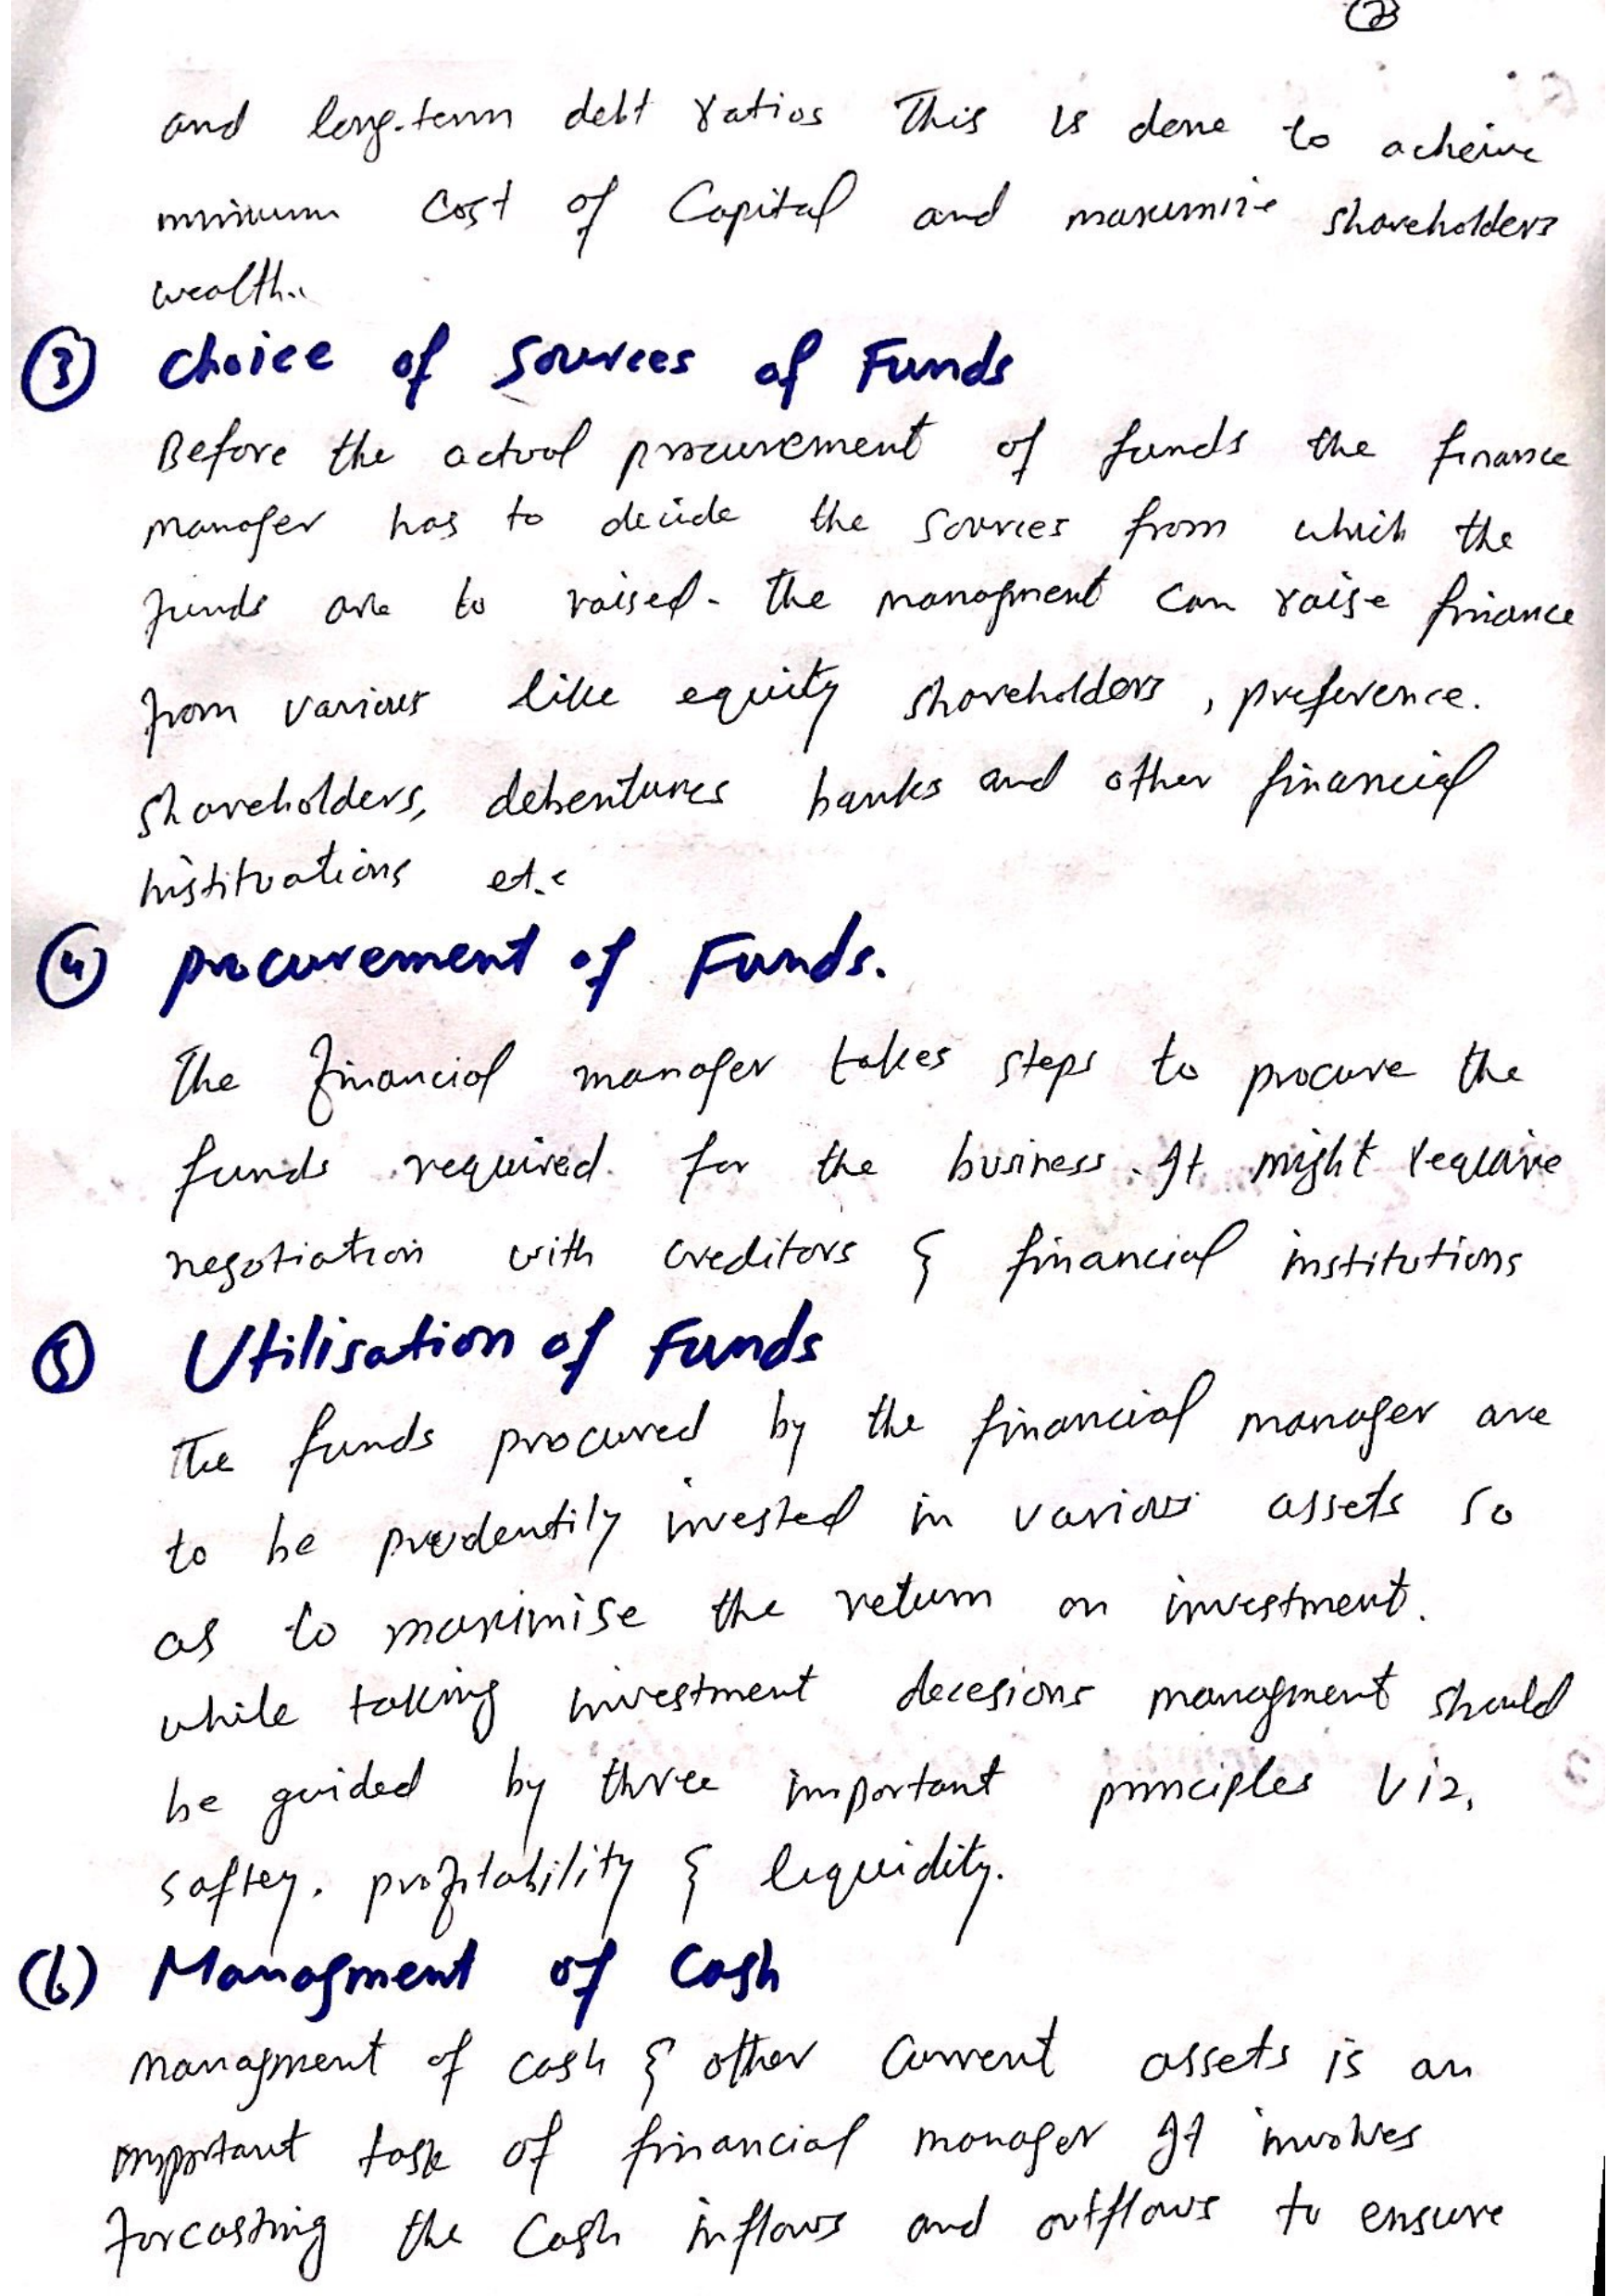 and long-term debt ratios This is done to acheive
minimum Cost of Capital and maxumize shareholders
wealth..
③ Choice of Sources of Funds
Before the actual procurement of funds the finance
manager has to decide the sources from which the
funds are to raised. The managment can raise finance
from various like equity shareholders, preference.
shareholders, debentures banks and other financial
instituations et.c
④ procurement of Funds.
The financial manager takes steps to procure the
funds required for the business. It might require
negotiation with creditors & financial institutions
⑤ Utilisation of Funds
The funds procured by the financial manager are
to be prudentily invested in various assets so
as to maximise the return on investment.
while taking investment decesions managment should
be guided by three important principles viz,
saftey. profitability & liquidity.
(6) Managment of Cash
managment of cash & other Current assets is an
important task of financial manager It involves
forcasting the Cash inflows and outflows to ensure